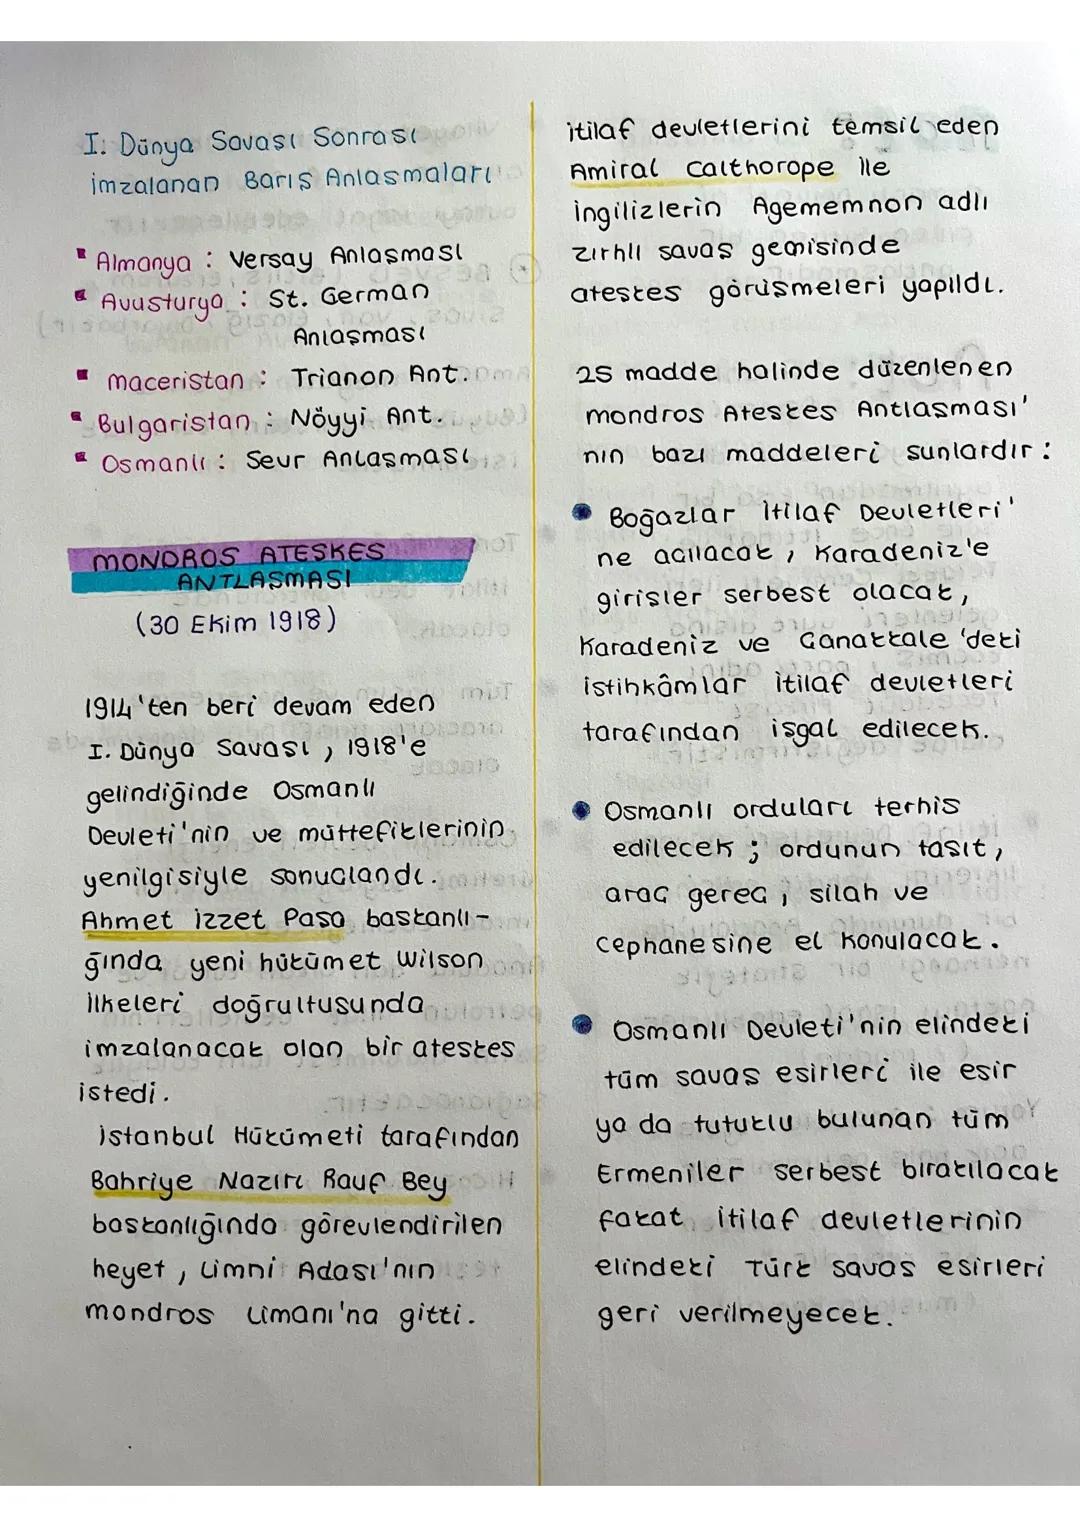 I. Dünya Savası Sonrası
imzalanan Barış Anlasmaları
Almanya : Versay Anlaşması
Avusturya : St. German
Anlaşması
maceristan : Trianon Ant.
Bulgaristan : Nöyyi Ant.
Osmanlı : Sevr Anlaşması
MONDROS ATESKES
ANTLASMASI
(30 Ekim 1918)
1914'ten beri devam eden
I. Dünya Savası, 1918'e
gelindiğinde Osmanlı
Devleti'nin ve müttefiklerinin
yenilgisiyle sonuclandı.
Ahmet izzet Pasa baskanlı-
ğında yeni hükümet Wilson
ilkeleri doğrultusunda
imzalanacak olan bir ateskes
istedi.
istanbul Hükümeti tarafından
Bahriye Nazırı Rauf Bey
baskanlığında görevlendirilen
heyet, Limni Adası'nın
mondros Limanı'na gitti.
itilaf devletlerini temsil eden
Amiral Calthorope ile
ingilizlerin Agememnon adlı
zırhlı savas gemisinde
ateskes görüşmeleri yapıldı.
25 madde halinde düzenlenen
mondros Ateskes Antlaşması'
nın bazı maddeleri sunlardır:
Boğazlar itilaf Devletleri'
ne acılacak, Karadeniz'e
girisler serbest olacak,
Karadeniz ve Canakkale'deki
istihkâmlar itilaf devletleri
tarafından işgal edilecek.
Osmanlı orduları terhis
edilecek; ordunun tasıt,
arac gerec, silah ve
cephanesine el konulacak.
Osmanlı Devleti'nin elindeki
tüm savas esirleri ile esir
ya da tutuklu bulunan tüm
Ermeniler serbest bırakılacak
fakat itilaf devletlerinin
elindeki Türk savas esirleri
geri verilmeyecek.